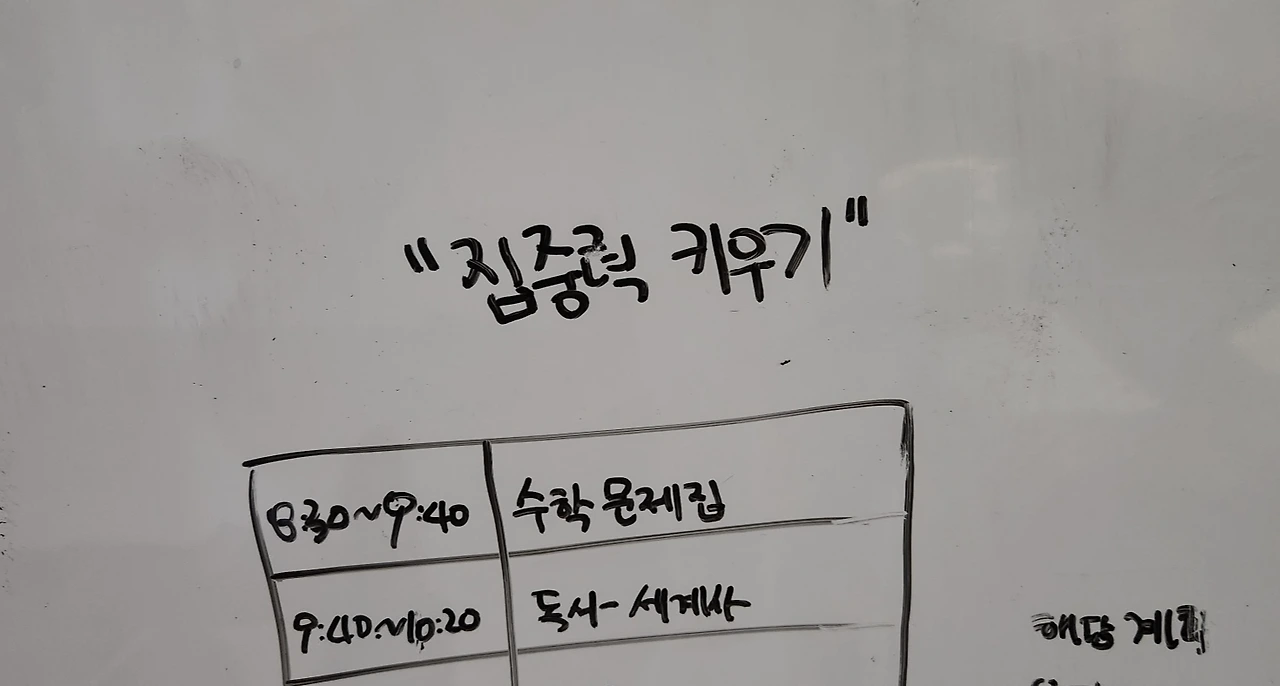 "집중력 키우기"
8:30~9:40 수학 문제집
9:40~10:20 독서-세계사
해당 계획